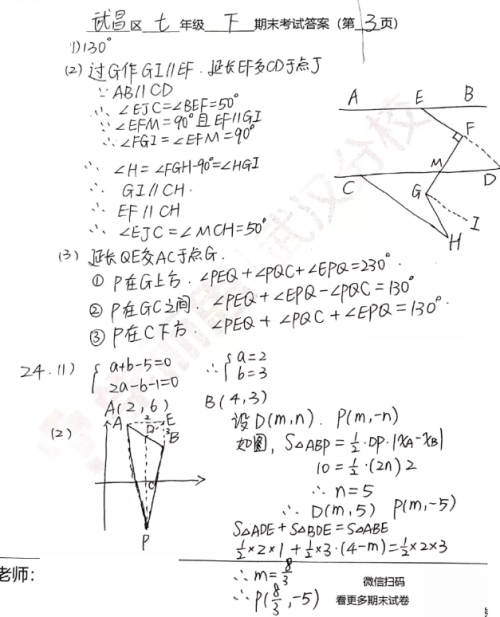 武昌区 七 年级 下 期末考试答案（第 3 页）
(1)130°
(2) 过G作GI//EF．延长EF交CD于点J
∵ AB//CD
∴ ∠EJC=∠BEF=50°
∵ ∠EFM=90°且EF//GI
∴ ∠FGI=∠EFM=90°
∴ ∠H=∠FGH-90°=∠HGI
∴ GI//CH.
∴ EF//CH
∴ ∠EJC=∠MCH=50°
A E B
F
M
C D
G I
H
(3) 延长QE交AC于点G.
① P在G上方．∠PEQ+∠PQC+∠EPQ=230°.
② P在GC之间．∠PEQ+∠EPQ-∠PQC=130°
③ P在C下方．∠PEQ+∠PQC+∠EPQ=130°.
24.(1) { a+b-5=0 ∴ { a=2
2a-b-1=0 b=3
A(2,6) B(4,3)
(2)
A 2 E
D B
P
设D(m,n)．P(m,-n)
如图，S△ABP=½·DP·|xA-xB|
10=½·(2n)2
∴ n=5
∴ D(m,5) P(m,-5)
S△ADE+S△BDE=S△ABE
½×2×1+½×3·(4-m)=½×2×3
∴ m=8/3
∴ P(8/3,-5)
老师：
微信扫码
看更多期末试卷